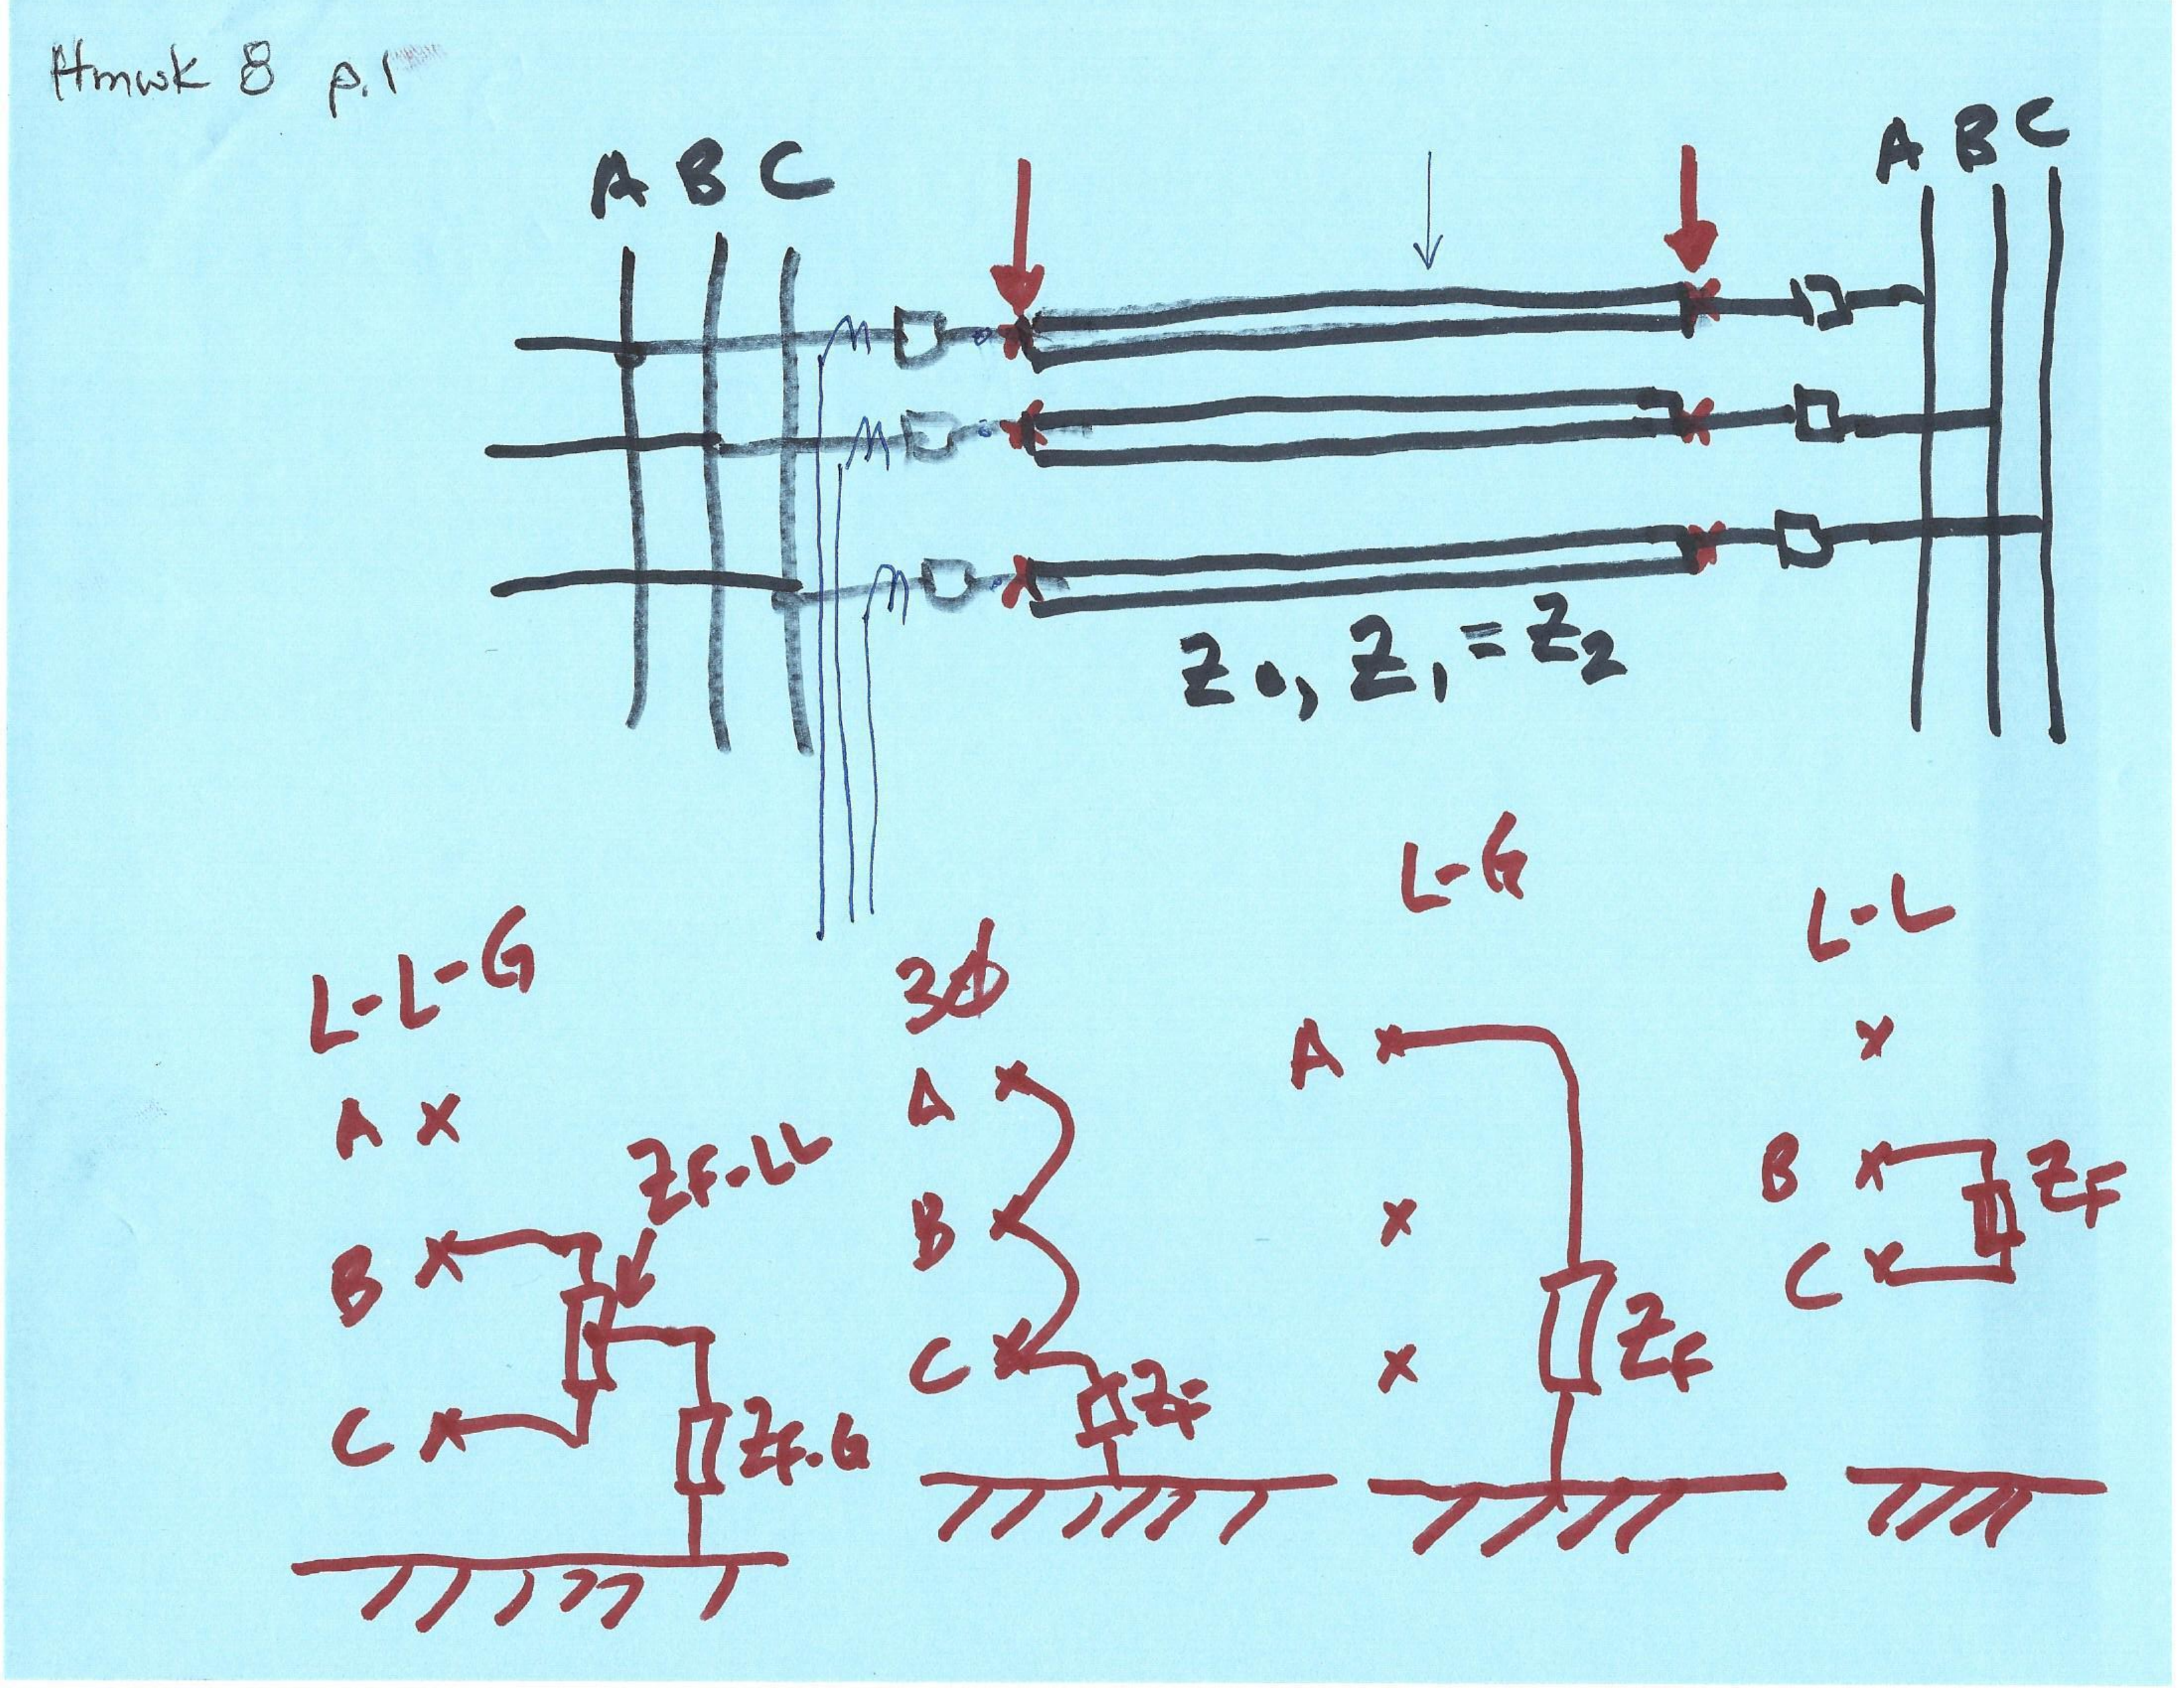 Hmwk 8 p.1
A B C
A B C
Z0, Z1 = Z2
L-L-G
A
B
C
ZF-LL
ZF-G
3ϕ
A
B
C
ZF
L-G
A
ZF
L-L
B
C
ZF